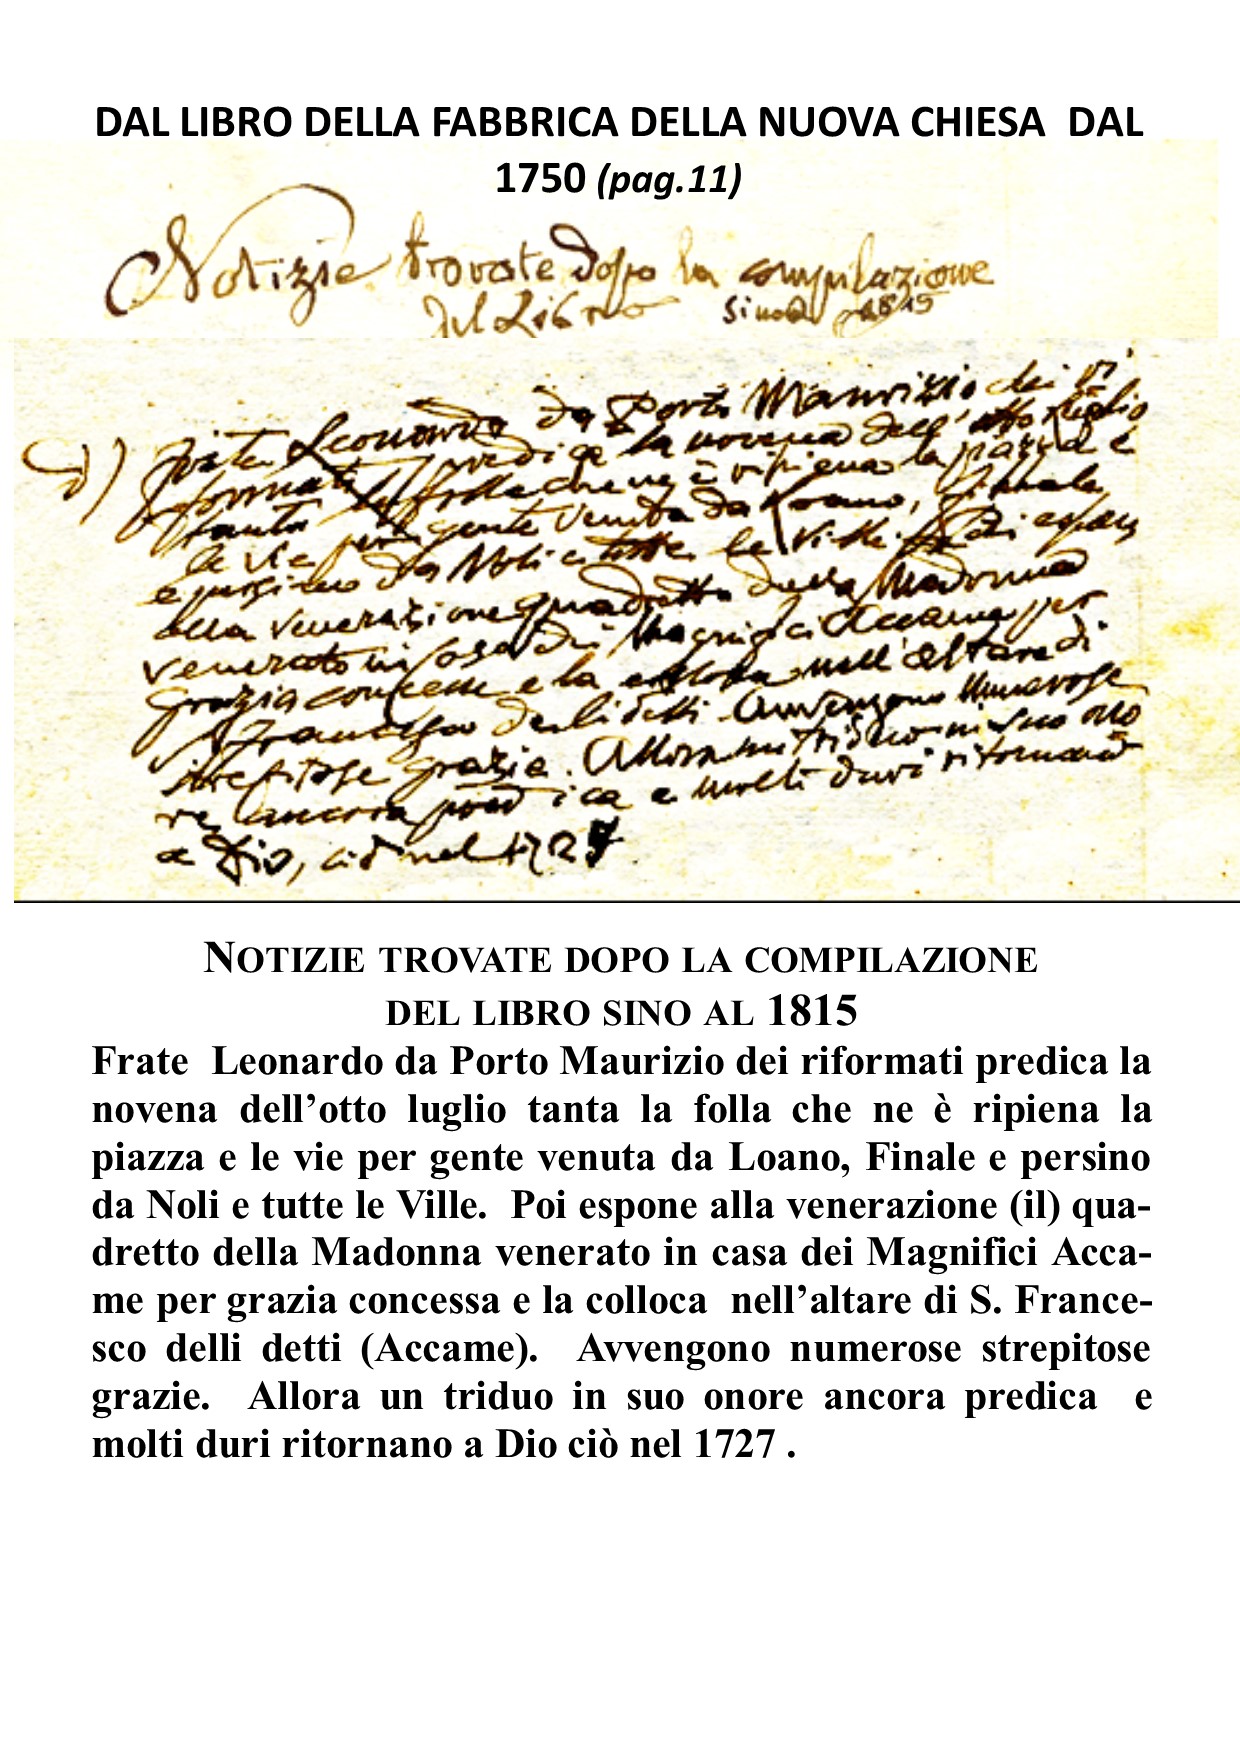 DAL LIBRO DELLA FABBRICA DELLA NUOVA CHIESA DAL
1750 (pag.11)
Notizie trovate dopo la compilazione
del Libro sino al 1815
Leonardo da Porto Maurizio dei ri
formati predica la novena dell'otto luglio
tanta la folla che ne è ripiena la piazza e
le vie per gente venuta da Loano, Finale
e persino da Noli e tutte le Ville. Poi espone
alla venerazione quadretto della Madonna
venerato in casa dei Magnifici Accame per
grazia concessa e la colloca nell'altare di
S. Francesco delli detti. Avvengono numerose
strepitose grazie. Allora un triduo in suo ono
re ancora predica e molti duri ritornano
a Dio, ciò nel 1727
NOTIZIE TROVATE DOPO LA COMPILAZIONE
DEL LIBRO SINO AL 1815
Frate Leonardo da Porto Maurizio dei riformati predica la
novena dell’otto luglio tanta la folla che ne è ripiena la
piazza e le vie per gente venuta da Loano, Finale e persino
da Noli e tutte le Ville. Poi espone alla venerazione (il) qua-
dretto della Madonna venerato in casa dei Magnifici Acca-
me per grazia concessa e la colloca nell’altare di S. France-
sco delli detti (Accame). Avvengono numerose strepitose
grazie. Allora un triduo in suo onore ancora predica e
molti duri ritornano a Dio ciò nel 1727 .